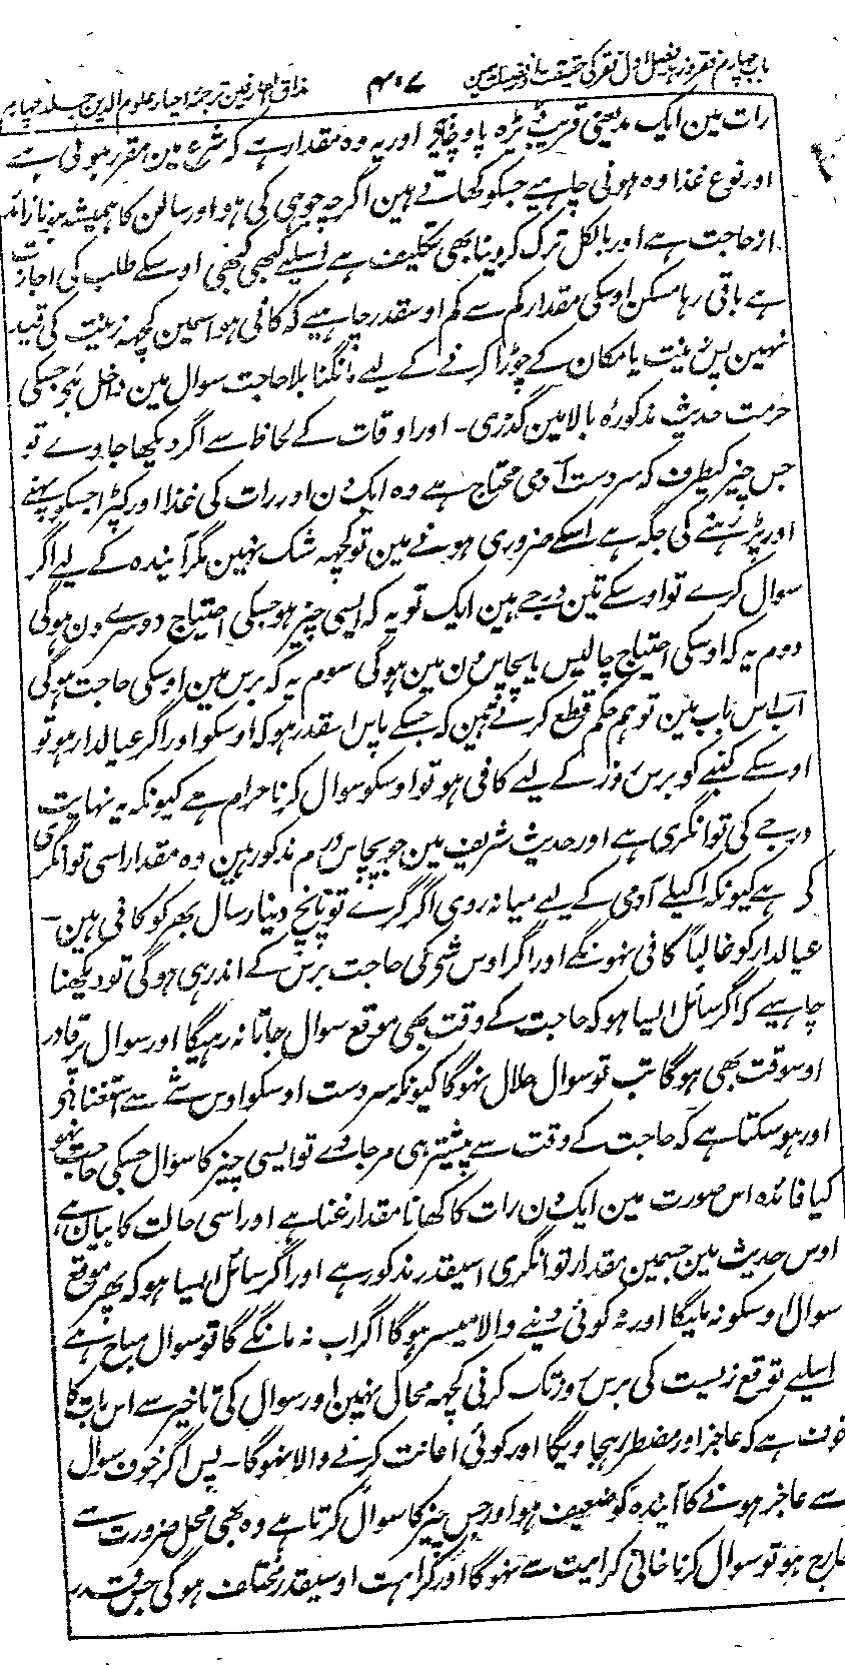 باب چہارم فقر و زہد فصل اول فقر کی حقیقت اور فضیلت مین ۴۰۷ مذاق العارفین ترجمۂ احیاء علوم الدین جلد چہارم
رات مین ایک مد یعنی قریب ڈیڑہ پاو پختہ اور یہ وہ مقدار ہے کہ شرع مین مقرر ہوئی ہے
اور نوع غذا وہ ہونی چاہیے جسکو کھاتے ہین اگرچہ جو ہی کی ہو اور سالن کا ہمیشہ ہونا زائد
از حاجت ہے اور بالکل ترک کر دینا بھی تکلیف ہے اسلیے کبھی کبھی اوسکے طلب کی اجازت
ہے باقی رہا مسکن اوسکی مقدار کم سے کم اوسقدر چاہیے کہ کافی ہو اسمین کچہہ زینت کی قید
نہین پس زینت یا مکان کے چوڑا کرنے کے لیے مانگنا بلا حاجت سوال مین داخل ہے جسکی
حرمت حدیث مذکورۂ بالا مین گذری۔ اور اوقات کے لحاظ سے اگر دیکھا جاوے تو
جس چیز کیطرف کہ سردست آدمی محتاج ہے وہ ایک دن اور رات کی غذا اور کپڑا جسکو پہنے
اور پڑ رہنے کی جگہ ہے اسکے ضروری ہونے مین تو کچہہ شک نہین مگر آیندہ کے لیے اگر
سوال کرے تو اوسکے تین درجے ہین ایک تو یہ کہ ایسی چیز ہو جسکی احتیاج دوسرے دن ہوگی
دوم یہ کہ اوسکی احتیاج چالیس یا پچاس دن مین ہوگی سوم یہ کہ برس مین اوسکی حاجت ہوگی
اب اس باب مین تو ہم حکم قطع کرتے ہین کہ جسکے پاس اسقدر ہو کہ اوسکو اور اگر عیالدار ہو تو
اوسکے کنبے کو برس روز کے لیے کافی ہو تو اوسکو سوال کرنا حرام ہے کیونکہ یہ نہایت
درجے کی توانگری ہے اور حدیث شریف مین جو پچاس درم مذکور ہین وہ مقدار اسی توانگری
کی ہے کیونکہ اکیلے آدمی کے لیے میانہ روی اگر کرے تو پانچ دینار سال بھر کو کافی ہین۔
عیالدار کو غالباً کافی نہونگے اور اگر اوس شی کی حاجت برس کے اندر ہی ہوگی تو دیکھنا
چاہیے کہ اگر سائل ایسا ہو کہ حاجت کے وقت بھی موقع سوال جاتا نہ رہیگا اور سوال پر قادر
اوسوقت بھی ہوگا تب تو سوال حلال نہوگا کیونکہ سردست اوسکو اوس شے سے استغنا ہے
اور ہو سکتا ہے کہ حاجت کے وقت سے پیشتر ہی مر جاوے تو ایسی چیز کا سوال جسکی حاجت نہو
کیا فائدہ اس صورت مین ایک دن رات کا کھانا مقدار غنا ہے اور اسی حالت کا بیان ہے
اوس حدیث مین جسمین مقدار توانگری اسیقدر مذکور ہے اور اگر سائل ایسا ہو کہ پھر موقع
سوال اوسکو نہ ملیگا اور نہ کوئی دینے والا میسر ہوگا اگر اب نہ مانگے گا تو سوال مباح ہے
اسلیے توقع زیست کی برس روز تک کرنی کچہہ محال نہین اور سوال کی تاخیر سے اس بات کا
خوف ہے کہ عاجز اور مضطر رہجاویگا اور کوئی اعانت کرنے والا نہوگا۔ پس اگر خوف سوال
سے عاجز ہونے کا آیندہ کو ضعیف ہو اور جس چیز کا سوال کرتا ہے وہ بھی محل ضرورت سے
خارج ہو تو سوال کرنا خالی کراہیت سے نہوگا اور کراہت اوسیقدر مختلف ہوگی جس قدر